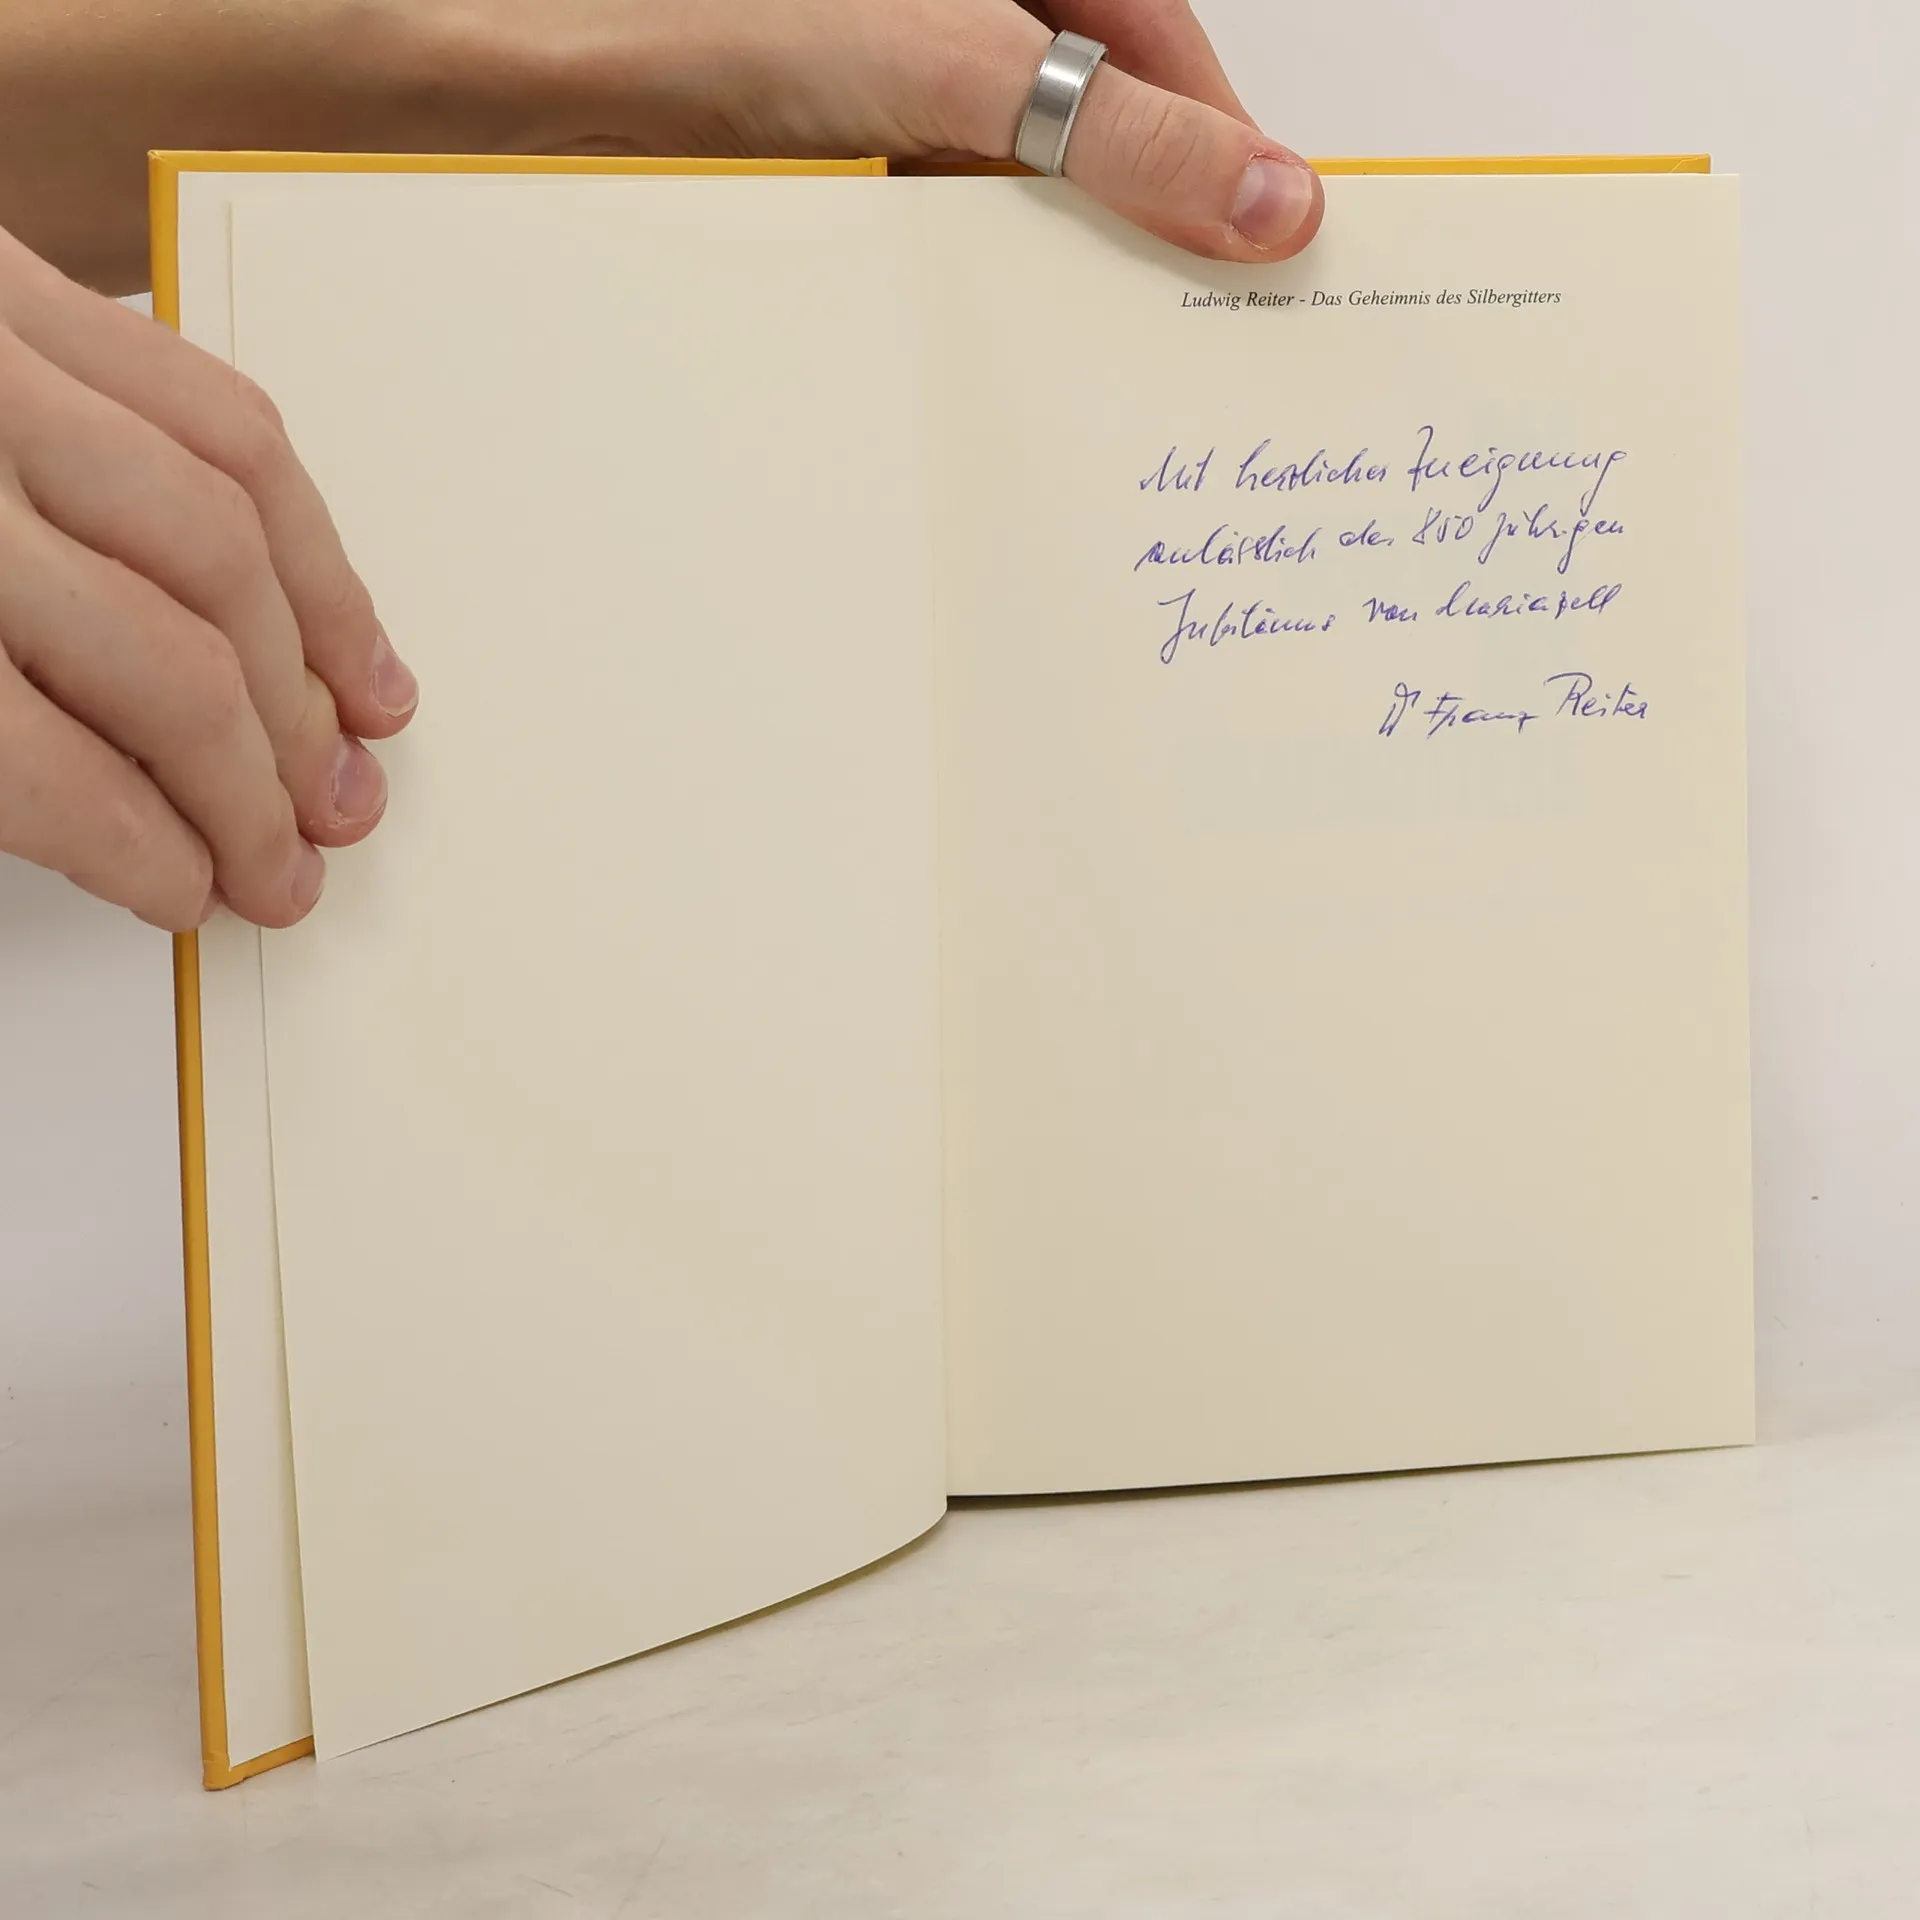 Ludwig Reiter - Das Geheimnis des Silbergitters
Mit herzlicher Zueignung
anlässlich des 850 jährigen
Jubiläums von Mariazell
Dr Franz Reiter